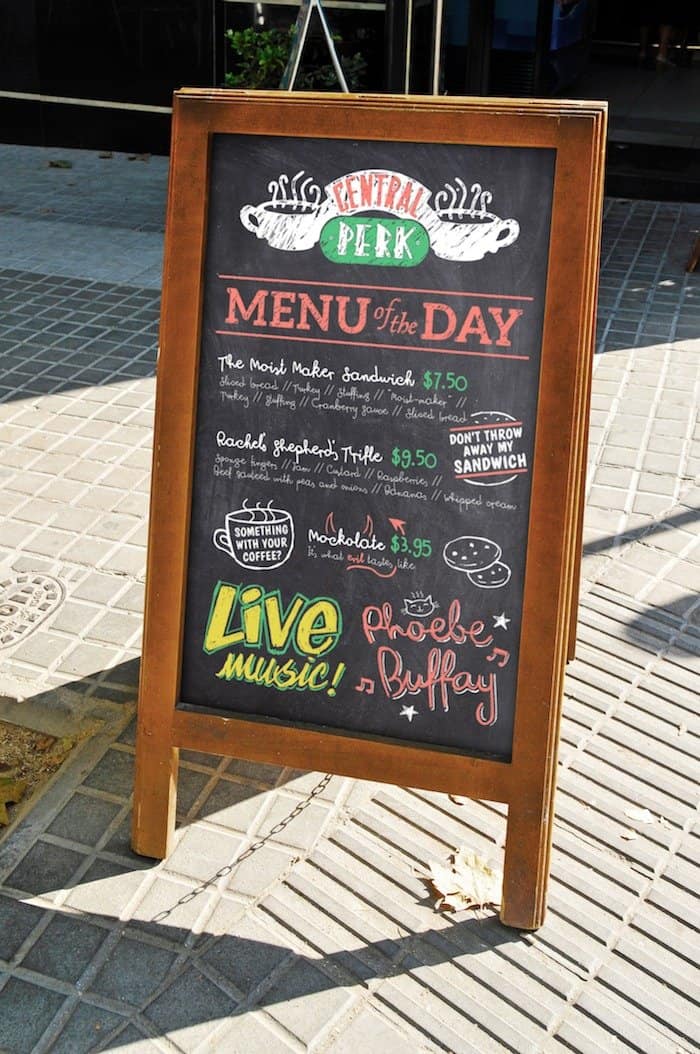 CENTRAL
PERK
MENU of the DAY
The Moist Maker Sandwich $7.50
Sliced bread // Turkey // Stuffing // "Moist-maker" //
Turkey // Stuffing // Cranberry Sauce // Sliced bread
DON'T THROW
AWAY MY
SANDWICH
Rachel's Shepherd's Trifle $9.50
Sponge fingers // Jam // Custard // Raspberries //
Beef sauteed with peas and onions // Bananas // Whipped cream
SOMETHING
WITH YOUR
COFFEE?
Mockolate $3.95
It's what evil tastes like
Live
music!
Phoebe
Buffay